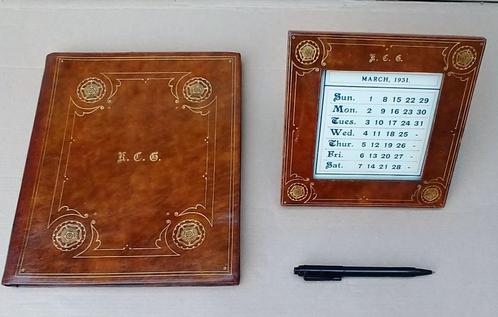 K. C. G.
K. C. G.
MARCH, 1931.
Sun. 1 8 15 22 29
Mon. 2 9 16 23 30
Tues. 3 10 17 24 31
Wed. 4 11 18 25 -
Thur. 5 12 19 26 -
Fri. 6 13 20 27 -
Sat. 7 14 21 28 -